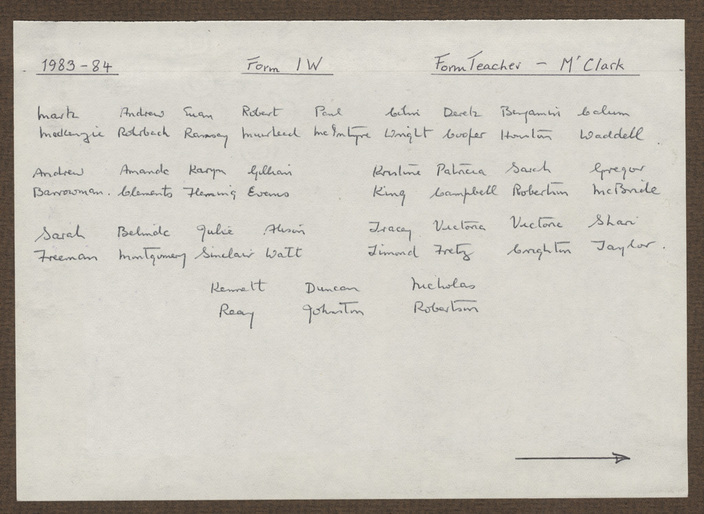 1983-84 Form 1W Form Teacher - Mr Clark
Mark Andrew Euan Robert Paul Colin Derek Benjamin Calum
Mackenzie Rohrbach Ramsay Muirhead McIntyre Wright Cooper Houston Waddell
Andrew Amanda Karyn Gillian Kirstine Patricia Sarah Gregor
Barrowman. Clements Fleming Evans King Campbell Robertson McBride
Sarah Belinda Julie Alison Tracey Victoria Victoria Shari
Freeman Montgomery Sinclair Watt Fretz Crighton Taylor.
Kenneth Duncan Nicholas
Reay Johnston Robertson